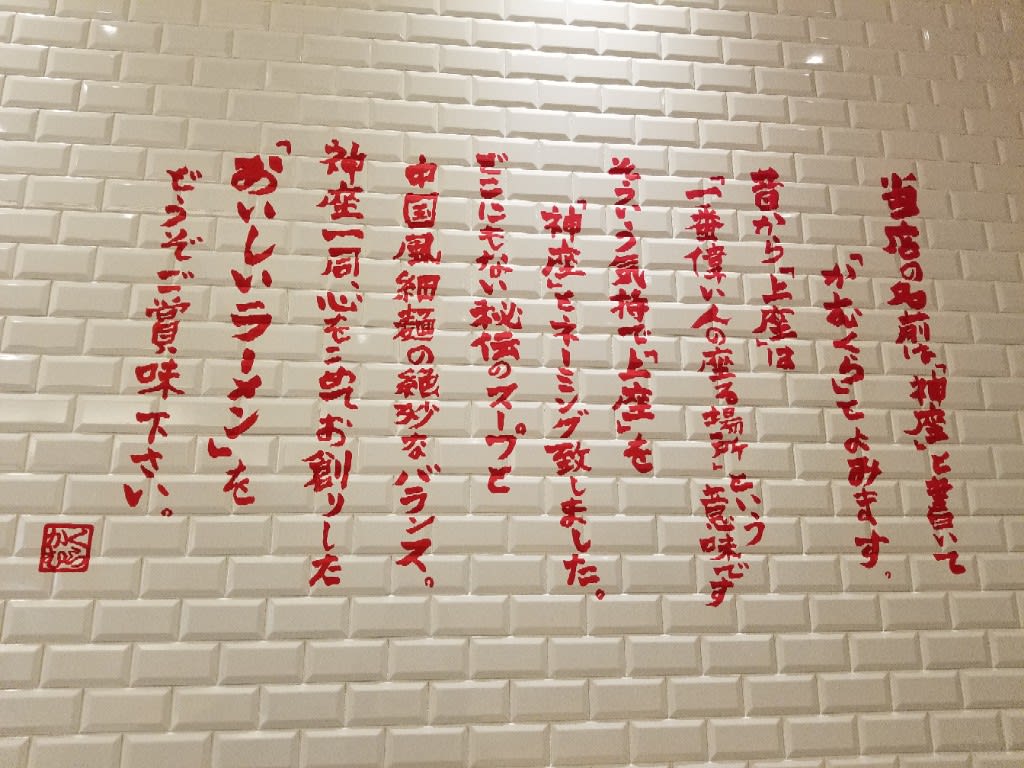 当店の名前は「神座」と書いて
「かむくら」とよみます。
昔から「上座」は
「一番偉い人の座る場所」という意味です
そういう気持で「上座」を
「神座」とネーミング致しました。
どこにもない秘伝のスープと
中国風細麺の絶妙なバランス。
神座一同、心をこめてお創りした
「おいしいラーメン」を
どうぞご賞味下さい。
かむくら